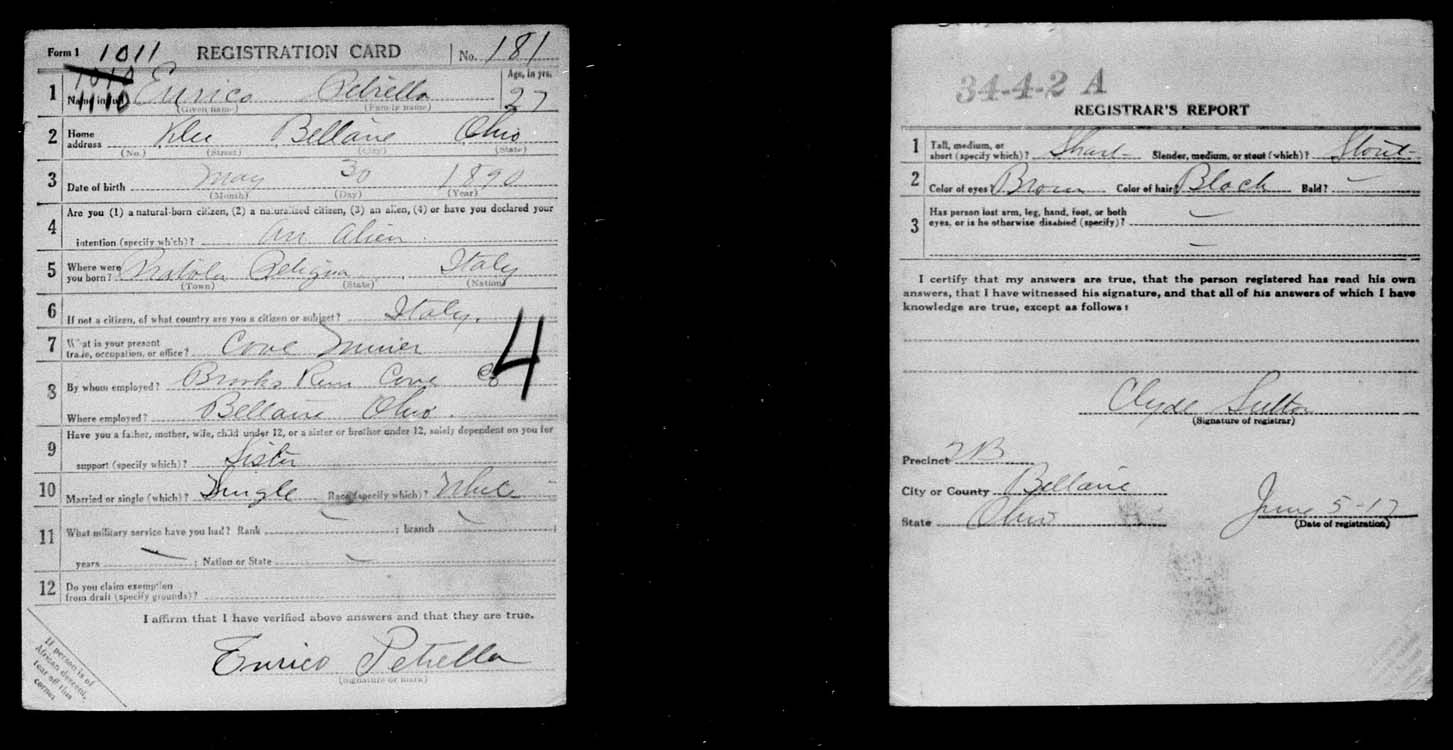 Form 1 1011 REGISTRATION CARD No. 181
1010
1110
1 Name in full Enrico Petrella Age, in yrs. 27
(Given name) (Family name)
2 Home address Klee Bellaire Ohio
(No.) (Street) (City) (State)
3 Date of birth May 30 1890
(Month) (Day) (Year)
4 Are you (1) a natural-born citizen, (2) a naturalized citizen, (3) an alien, (4) or have you declared your
intention (specify which)? An Alien
5 Where were you born? Pratola Peligna, Italy
(Town) (State) (Nation)
6 If not a citizen, of what country are you a citizen or subject? Italy.
7 What is your present
trade, occupation, or office? Cove Miner
4
8 By whom employed? Brooks Run Cove Co
Where employed? Bellaire Ohio.
9 Have you a father, mother, wife, child under 12, or a sister or brother under 12, solely dependent on you for
support (specify which)? Sister
10 Married or single (which)? Single Race (specify which)? White
11 What military service have you had? Rank — ; branch — ;
years — ; Nation or State —
12 Do you claim exemption
from draft (specify grounds)?
I affirm that I have verified above answers and that they are true.
Enrico Petrella
(Signature or mark)
If person is of
African descent,
tear off this
corner
34-4-2 A
REGISTRAR'S REPORT
1 Tall, medium, or
short (specify which)? Short Slender, medium, or stout (which)? Stout
2 Color of eyes? Brown Color of hair? Black Bald? —
3 Has person lost arm, leg, hand, foot, or both
eyes, or is he otherwise disabled (specify)? —
—
I certify that my answers are true, that the person registered has read his own
answers, that I have witnessed his signature, and that all of his answers of which I have
knowledge are true, except as follows:
Clyde Sutton
(Signature of registrar)
Precinct 2B
City or County Bellaire
State Ohio June 5-17
(Date of registration)